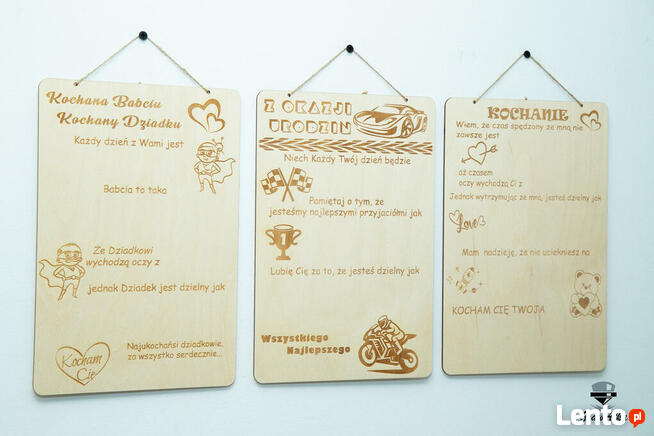 Kochana Babciu
Kochany Dziadku
Każdy dzień z Wami jest
Babcia to taka
Że Dziadkowi
wychodzą oczy z
jednak Dziadek jest dzielny jak
Kocham
Cię
Najukochańsi dziadkowie,
za wszystko serdecznie...
Z OKAZJI
URODZIN
Niech Każdy Twój dzień będzie
Pamiętaj o tym, że
jesteśmy najlepszymi przyjaciółmi jak
1
Lubię Cię za to, że jesteś dzielny jak
Wszystkiego
Najlepszego
KOCHANIE
Wiem, że czas spędzony ze mną nie
zawsze jest
aż czasem
oczy wychodzą Ci z
Jednak wytrzymując ze mną, jesteś dzielny jak
Love
Mam nadzieję, że nie uciekniesz na
KOCHAM CIĘ TWOJA
Lento.pl